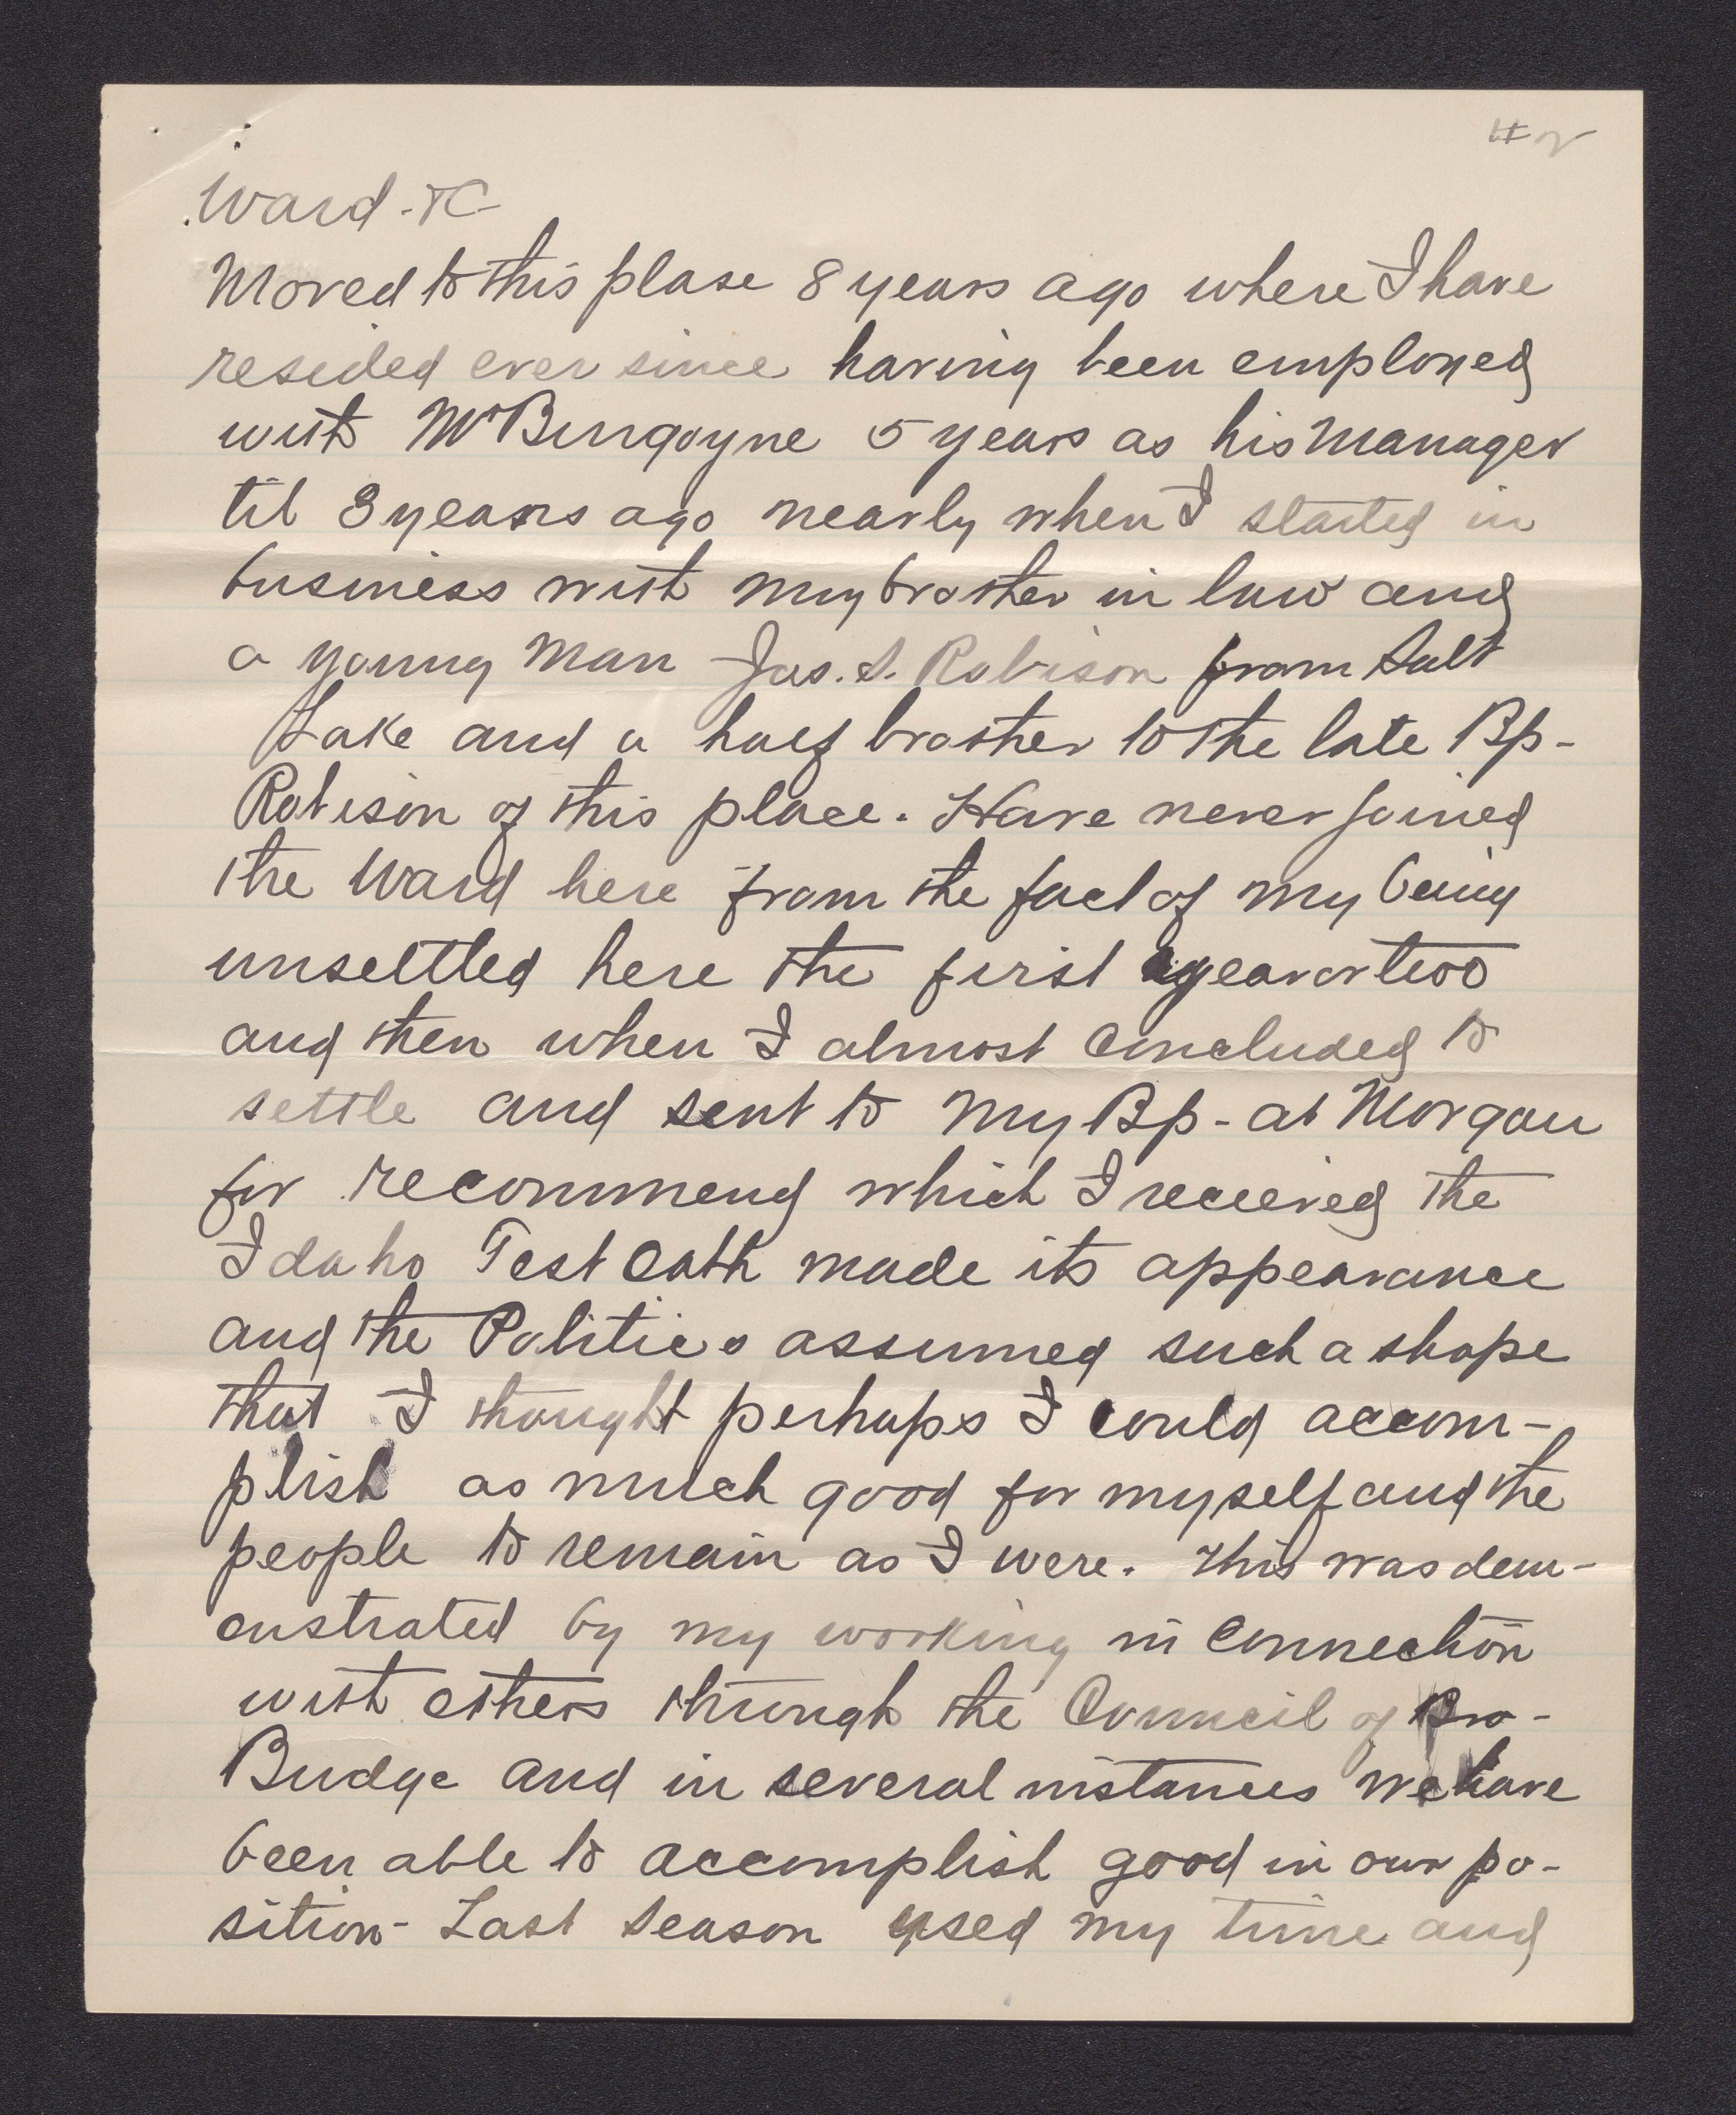 #2
Ward - &C -
Moved to this plase 8 years ago where I have
resided ever since having been employed
with Mr Burgoyne 5 years as his Manager
til 3 years ago nearly when I started in
business with my brother in law and
a young man Jas. S. Robison from Salt
Lake and a half brother to the late Bp-
Robison of this place. Have never joined
the Ward here from the fact of my being
unsettled here the first year or two
and then when I almost concluded to
settle and sent to my Bp- at Morgan
for recommend which I received the
Idaho Test Oath made its appearance
and the Politics assumed such a shape
that I thought perhaps I could accom-
plish as much good for myself and the
people to remain as I were. This was dem-
onstrated by my working in connection
with others through the Council of Bro-
Budge and in several instances we have
been able to accomplish good in our po-
sition- Last season used my time and